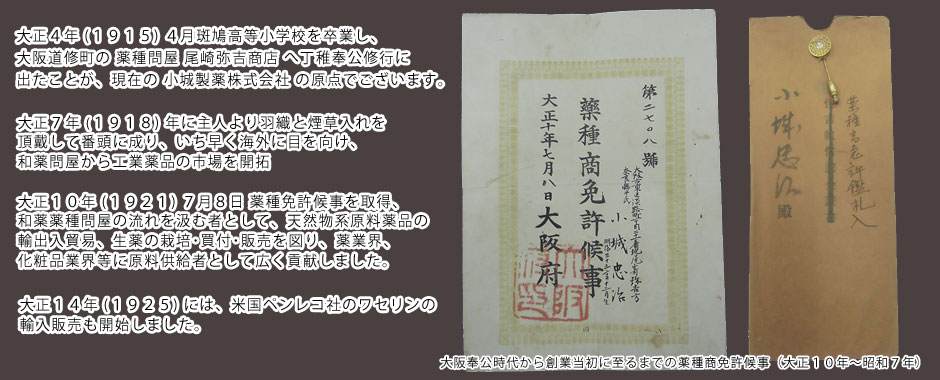 大正４年(１９１５)４月斑鳩高等小学校を卒業し、
大阪道修町の 薬種問屋 尾崎弥吉商店 へ丁稚奉公修行に
出たことが、現在の 小城製薬株式会社 の原点でございます。
大正７年(１９１８)年に主人より羽織と煙草入れを
頂戴して番頭に成り、いち早く海外に目を向け、
和薬問屋から工業薬品の市場を開拓
大正１０年(１９２１)７月８日 薬種免許候事を取得、
和薬薬種問屋の流れを汲む者として、天然物系原料薬品の
輸出入貿易、生薬の栽培･買付･販売を図り、薬業界、
化粧品業界等に原料供給者として広く貢献しました。
大正１４年(１９２５)には、米国ペンレコ社のワセリンの
輸入販売も開始しました。
第二七〇八號
小城忠治
藥種商免許候事
大正十年七月八日
大阪府
小城忠治殿
大阪奉公時代から創業当初に至るまでの薬種商免許候事（大正１０年～昭和７年）